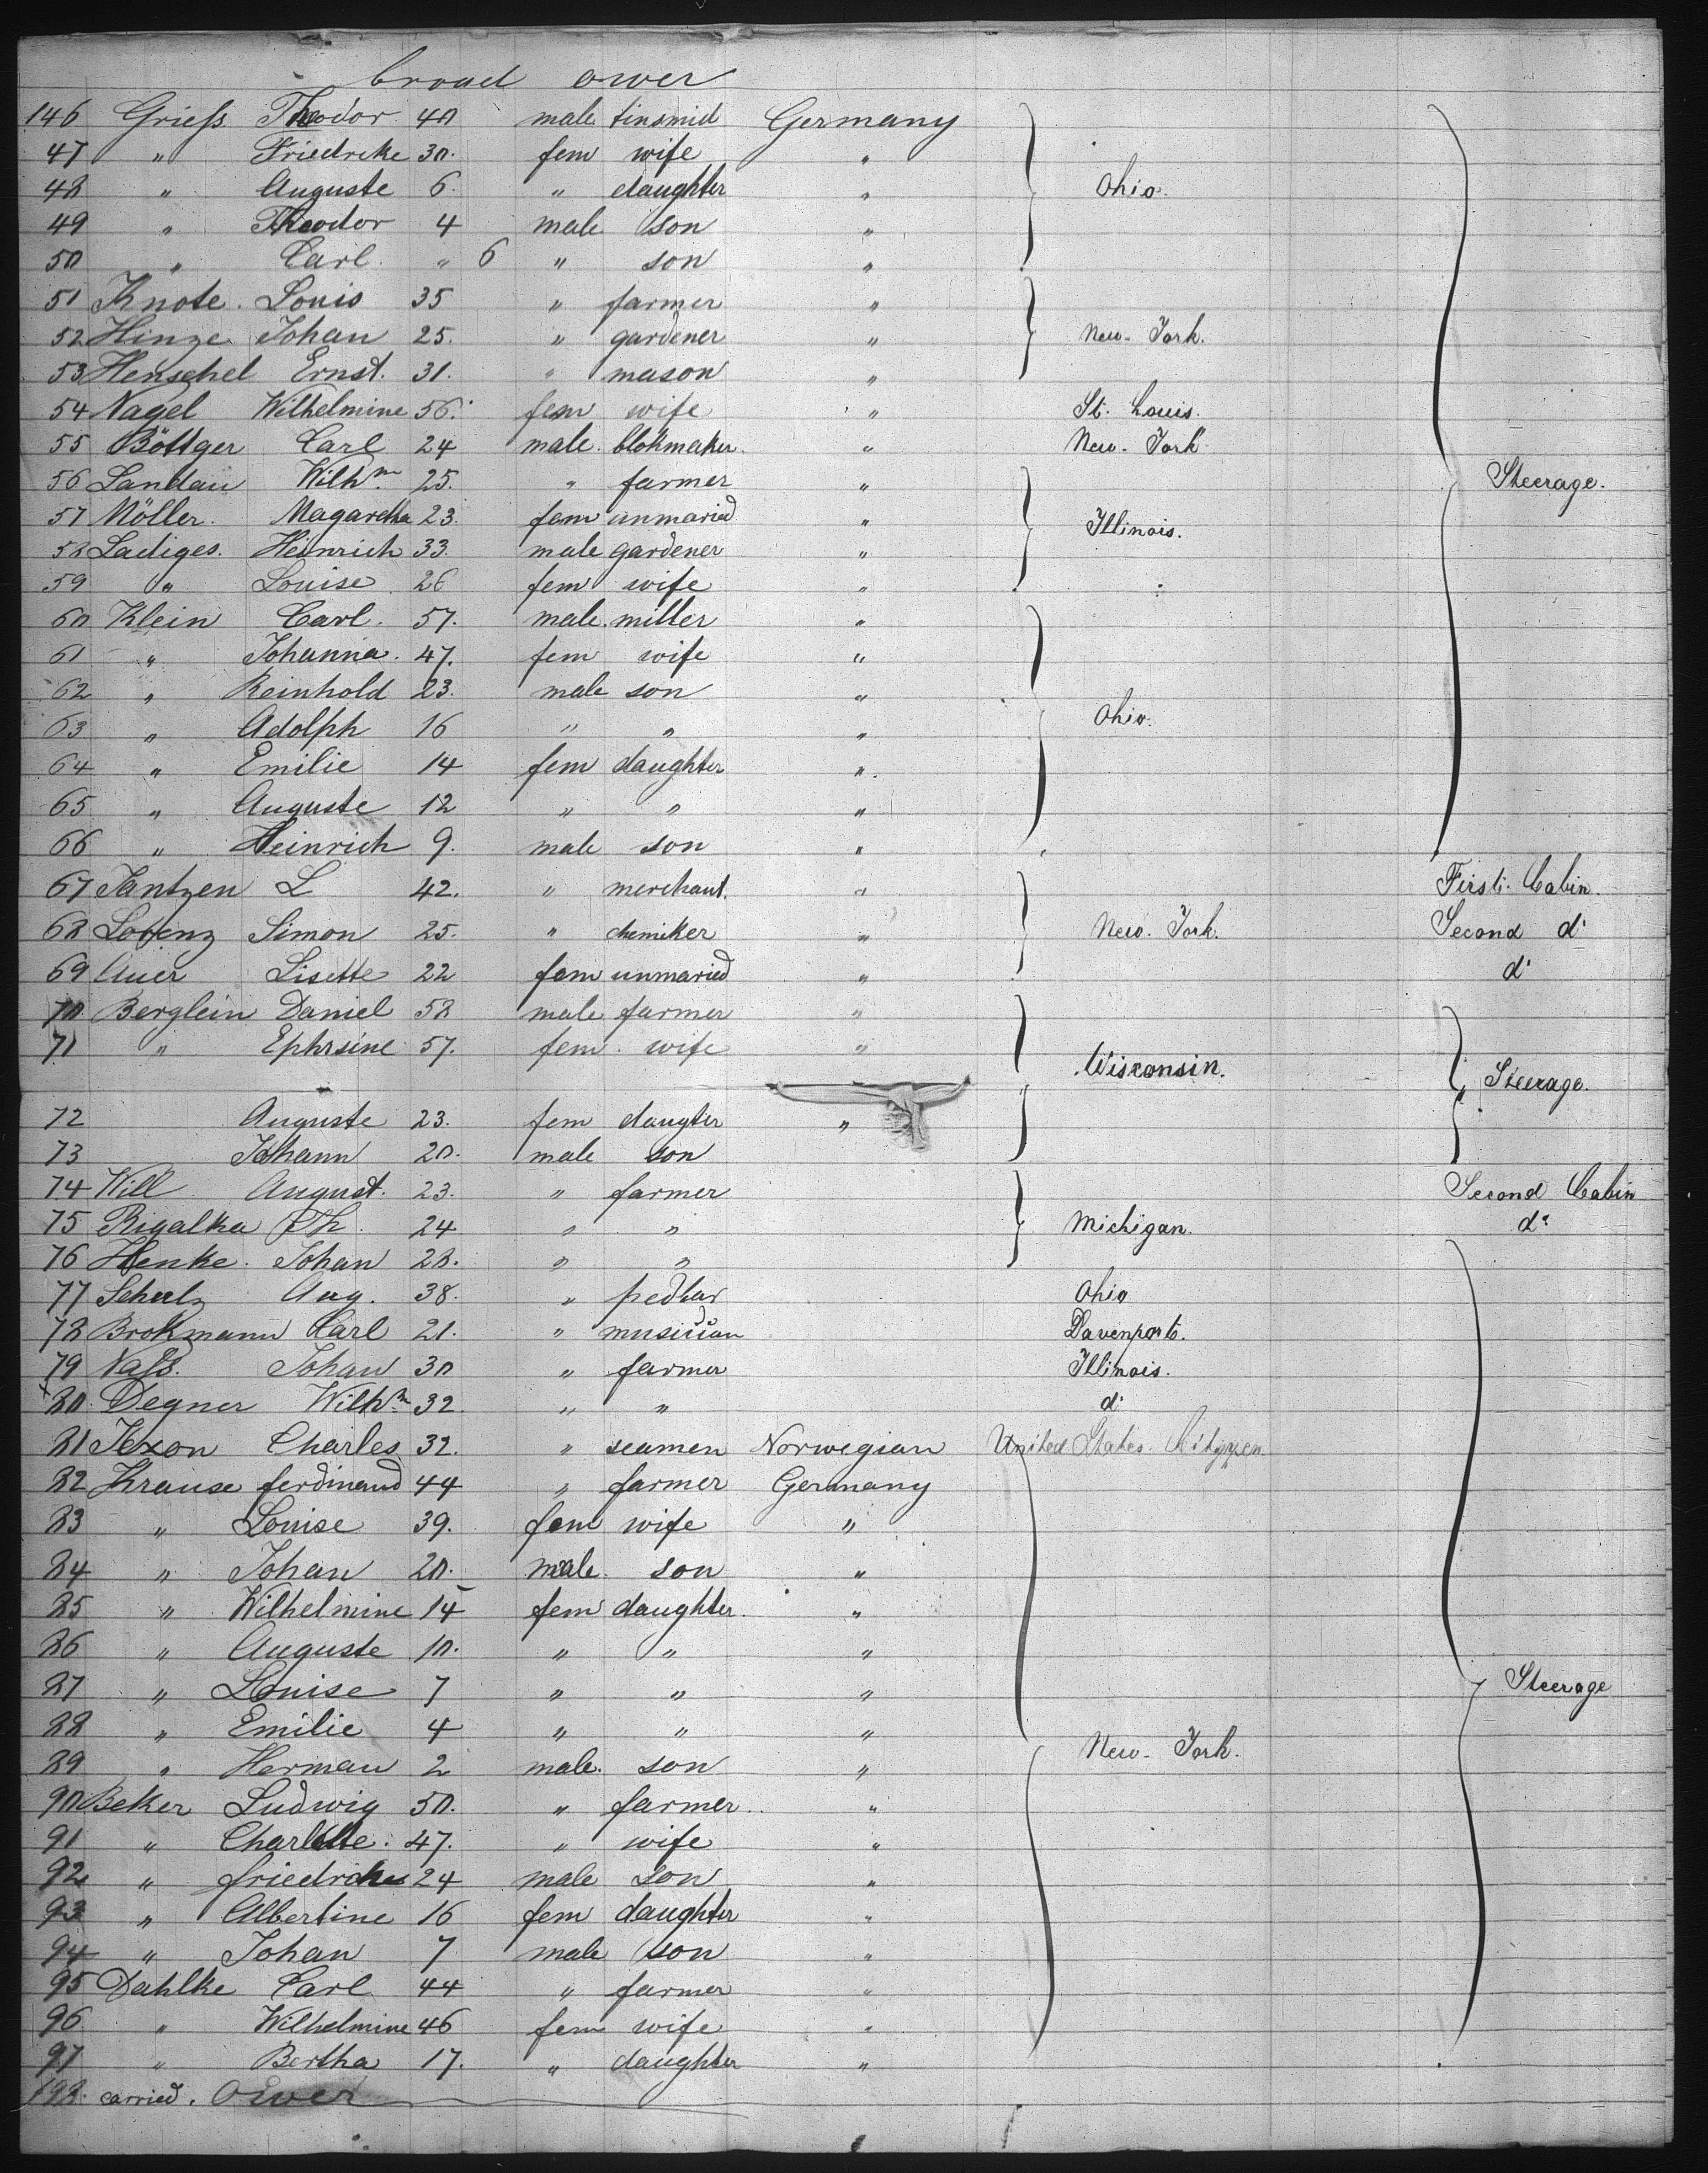 broad ower
146 Griefs Theodor 40 male tinsmid Germany
47 " Friedrike 30. fem wife "
48 " Auguste 6. " daughter " Ohio.
49 " Theodor 4 male son "
50 " Carl " 6 " son "
51 Knote. Louis 35 " farmer "
52 Hinze Johan 25. " gardener " New-York.
53 Henschel Ernst. 31. " mason "
54 Nagel Wilhelmine 56. fem wife " St. Louis.
55 Böttger Carl 24 male. blokmaker. " New-York
56 Landau Wilhm 25. " farmer " Steerage.
57 Möller. Magaretha 23. fem unmaried " Illinois.
58 Ladiges. Heinrich 33. male gardener "
59 " Louise 26 fem wife "
60 Klein Carl. 57. male. miller "
61 " Johanna. 47. fem wife "
62 " Reinhold 23. male son "
63 " Adolph 16 " " " Ohio.
64 " Emilie 14 fem daughter ".
65 " Auguste 12 " " "
66 " Heinrich 9. male son "
67 Jantzen L 42. " merchant. " First. Cabin.
68 Lorenz Simon 25. " chemiker " New-York. Second do
69 Auer Lisette 22 fem unmaried " do
70 Berglein Daniel 58 male farmer "
71 " Ephrsine 57. fem. wife " Wisconsin. Steerage.
72 Auguste 23. fem daugter "
73 Johann 20. male son
74 Will August. 23. " farmer Second Cabin
75 Rigalka Th. 24 " " Michigan. do
76 Henke. Johan 28. " "
77 Schulz Aug. 38. " pedlar Ohio
78 Brokmann Carl 21. " musician Davenport.
79 Nafs. Johan 30 " farmer Illinois.
80. Degner Wilhm 32. " " do
81 Jexon Charles 32. " seamen Norwegian United States. Citizzen
82 Krause ferdinand 44 " farmer Germany
83 " Louise 39. fem wife "
84 " Johan 20. male. son "
85 " Wilhelmine 14 fem daughter. "
86 " Auguste 10. " " "
87 " Louise 7 " " " Steerage
88 " Emilie 4 " " "
89 " Herman 2 male. son " New-York.
90 Beker Ludwig 50. " farmer. "
91 " Charlotte. 47. " wife "
92 " friedrich 24 male son "
93 " Albertine 16 fem daughter "
94 " Johan 7 male son "
95 Dahlke Carl 44 " farmer "
96 " Wilhelmine 46 fem wife "
97 " Bertha 17. " daughter "
198. carried. Ower